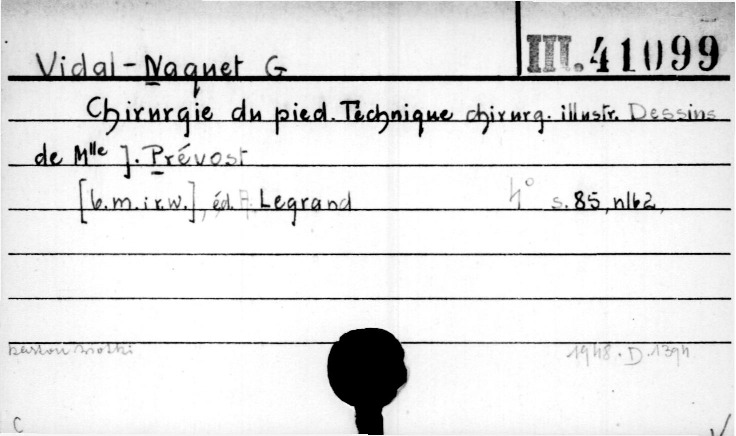 III. 41099
Vidal-Naquet G
Chirurgie du pied. Technique chirurg. illustr. Dessins
de Mlle J. Prévost
[b.m.i r.w.], éd. A. Legrand 4° s. 85, nlb2,
1948. D. 1394
C